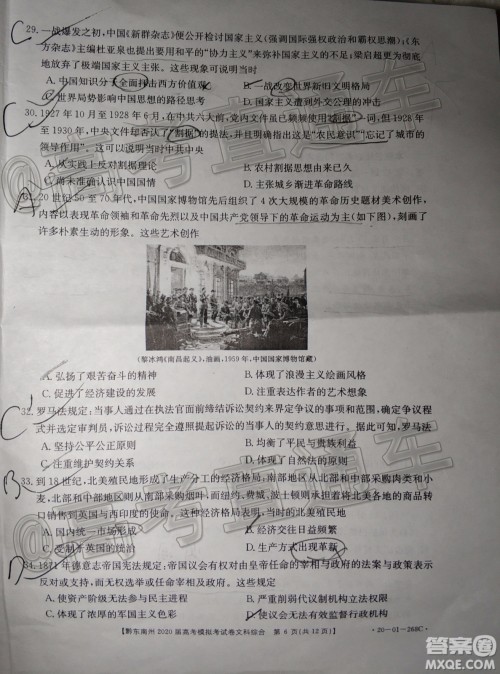 29. 一战爆发之初,中国《新群杂志》便公开检讨国家主义(强调国际强权政治和霸权思潮);《东
方杂志》主编杜亚泉也提出要用和平的“协力主义”来弥补国家主义的不足;梁启超更为彻底
地放弃了极端国家主义主张。这些现象可说明当时
A. 中国知识分子全面抨击西方价值观
B. 一战改变世界新旧文明格局
C. 世界局势影响中国思想的路径思考
D. 国家主义遭到外交公理的冲击
30. 1927年10月至1928年6月,在中共六大前,党内文件虽已频频使用“割据”一词,但1928年
至1930年,中央文件却否认了“割据”的提法,并且明确指出这是“农民意识”“忘记了城市的
领导作用”。这一变化说明当时中共
A. 从实践上反对割据理论
B. 农村割据思想由来已久
C. 尚未准确认识中国国情
D. 主张城乡渐进革命路线
31. 20世纪50至70年代,中国国家博物馆先后组织了4次大规模的革命历史题材美术创作,
内容以表现革命领袖和革命先烈以及中国共产党领导下的革命运动为主(如下图),刻画了
许多朴素生动的形象。这些艺术创作
(黎冰鸿《南昌起义》,油画,1959年,中国国家博物馆藏)
A. 弘扬了艰苦奋斗的精神
B. 体现了浪漫主义绘画风格
C. 促进了经济建设的发展
D. 注重表达作者的艺术创作
32. 罗马法规定:当事人通过在执法官面前缔结诉讼契约来界定争议的事项和范围,确定争议程
式并选定审判员,诉讼过程完全遵循当事人的契约意思进行。据此可知,罗马法
A. 坚持公平公正原则
B. 有助于平民与贵族利益
C. 注重维护契约关系
D. 体现了法律至上的原则
33. 到18世纪,北美殖民地形成了生产分工的经济格局,中国和北部殖民地从南部购买烟草、靛
蓝,北部和中部地区则从南部收购烟叶,而曼哈顿、费城、波士顿则承担把北美各地的商品转
口销到英国与西印度的使命。这种经济格局表明,当时的北美殖民地
A. 国内统一市场形成
B. 经济交往日益频繁
C. 受制于英国的统治
D. 生产方式出现革新
34. 1871年德意志帝国宪法规定:帝国议会有权对由皇帝任命的宰相与政府的法案与政策表示
反对或支持,而无权任命宰相及政府。这些规定
A. 体现了公民主权的原则
B. 严重削弱代议制机构权力
C. 促使国家权力走向民主
D. 使议会无力监督行政机构
【黔东南州2020届高考模拟考试卷文科综合 第6页(共12页)】
·20-01-268C·
C
C
A
C
B
D
@高考直通车
答案圈